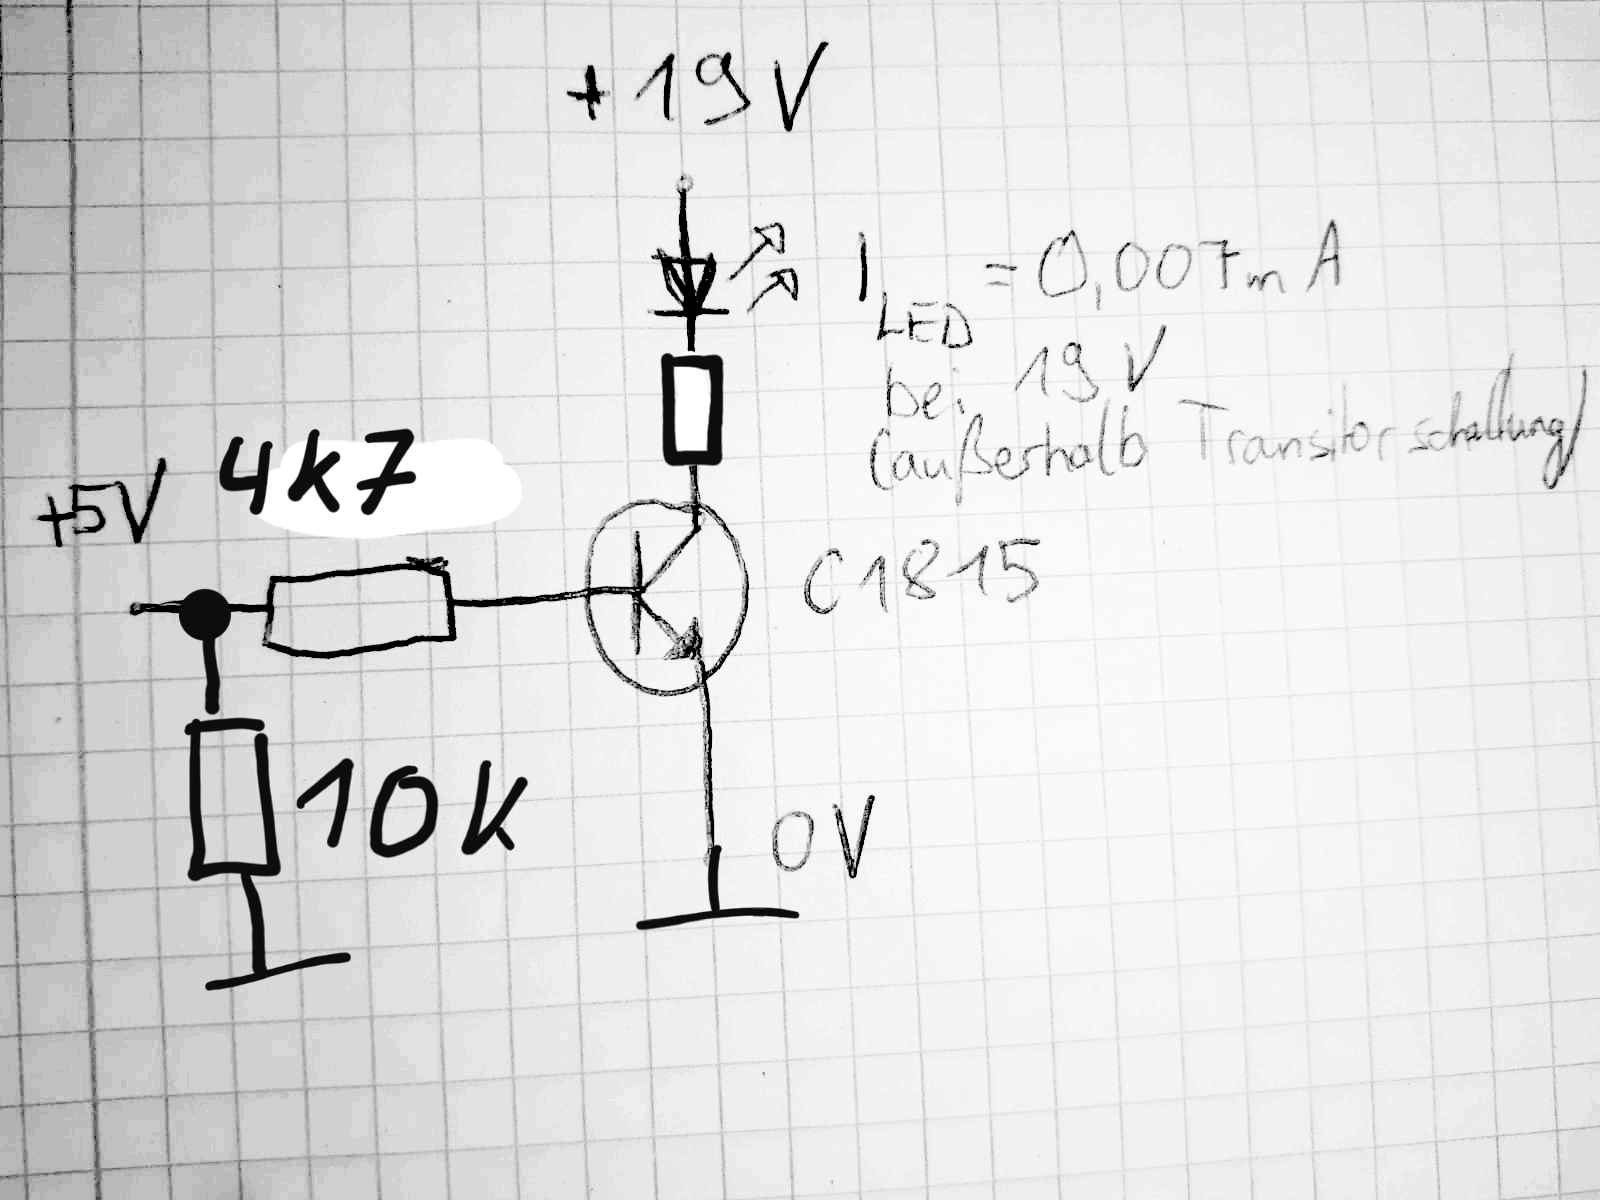 +19V
I LED = 0,007mA
bei 19V
(außerhalb Transitorschaltung)
4k7
+5V
C1815
10k
0V